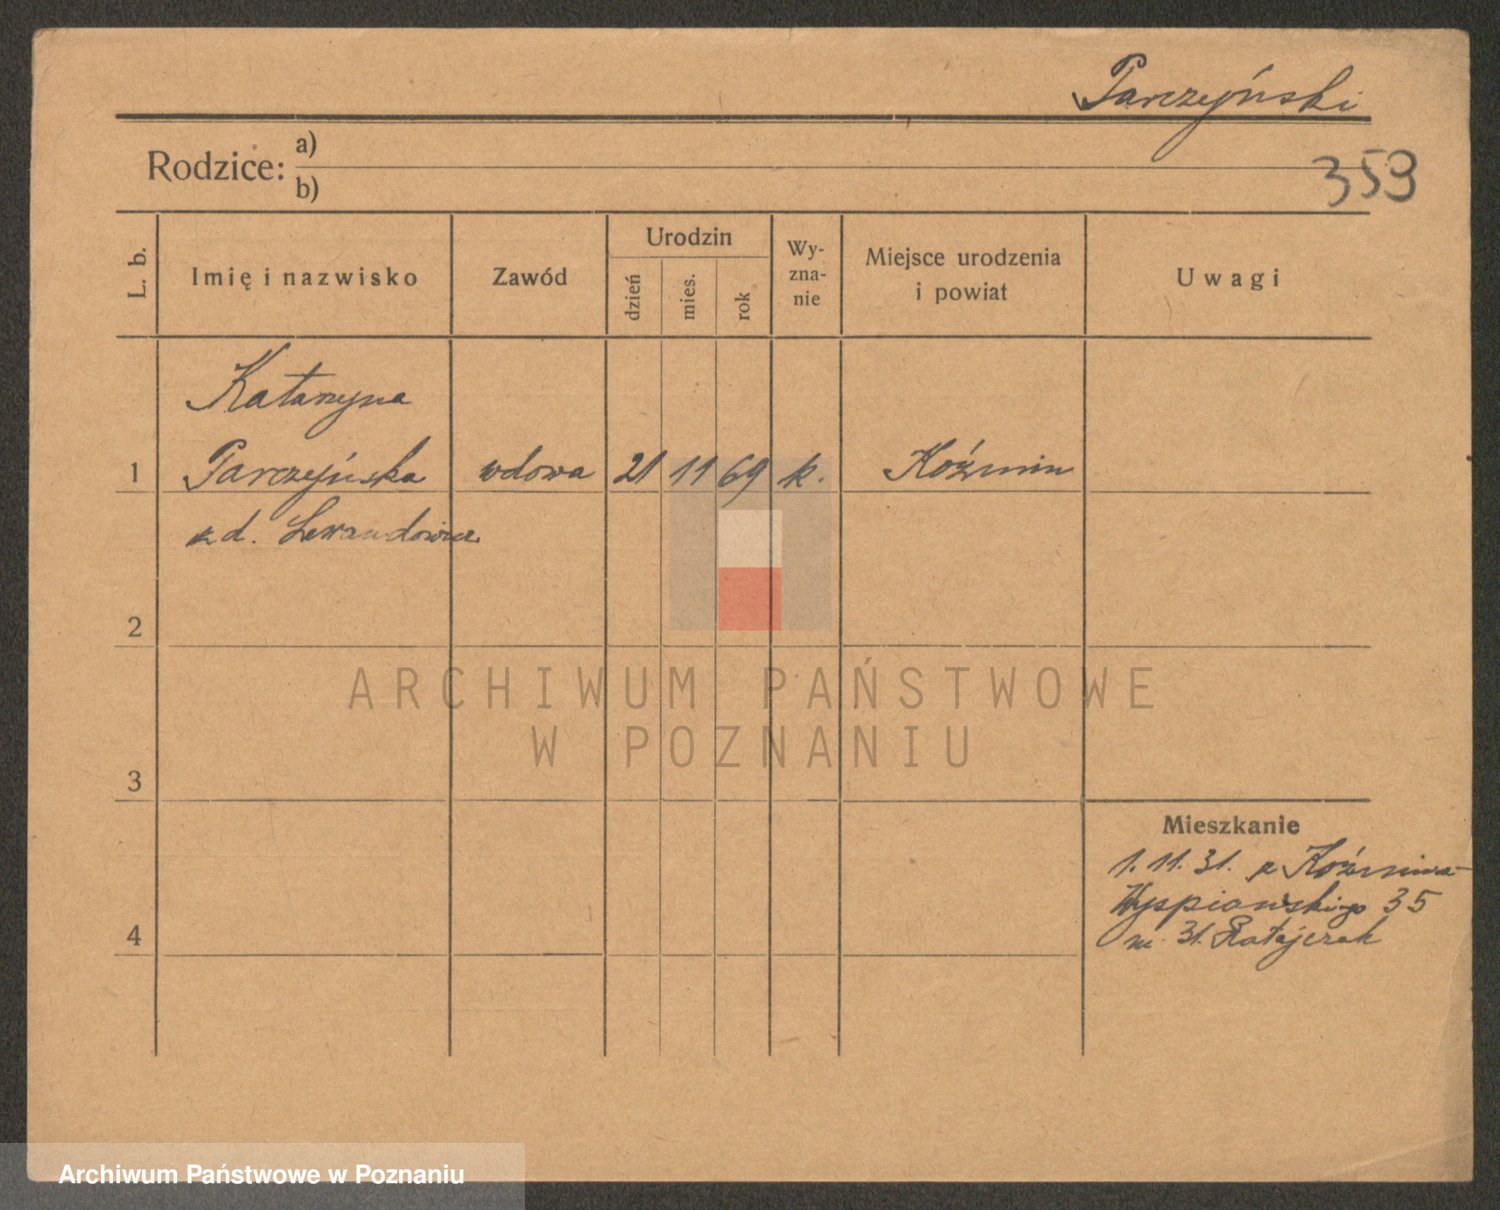 Parczyński
Rodzice: a)
b)
359
L. b.
Imię i nazwisko
Zawód
Urodzin
dzień
mies.
rok
Wy-
zna-
nie
Miejsce urodzenia
i powiat
Uwagi
Katarzyna
1 Parczyńska wdowa 21 11 69 k. Koźmin
z d. Lewandowicz
2
3
4
Mieszkanie
1.11.31. z Koźmina
Wyspiańskiego 35
m. 31. Ratajczak
ARCHIWUM PAŃSTWOWE
W POZNANIU
Archiwum Państwowe w Poznaniu